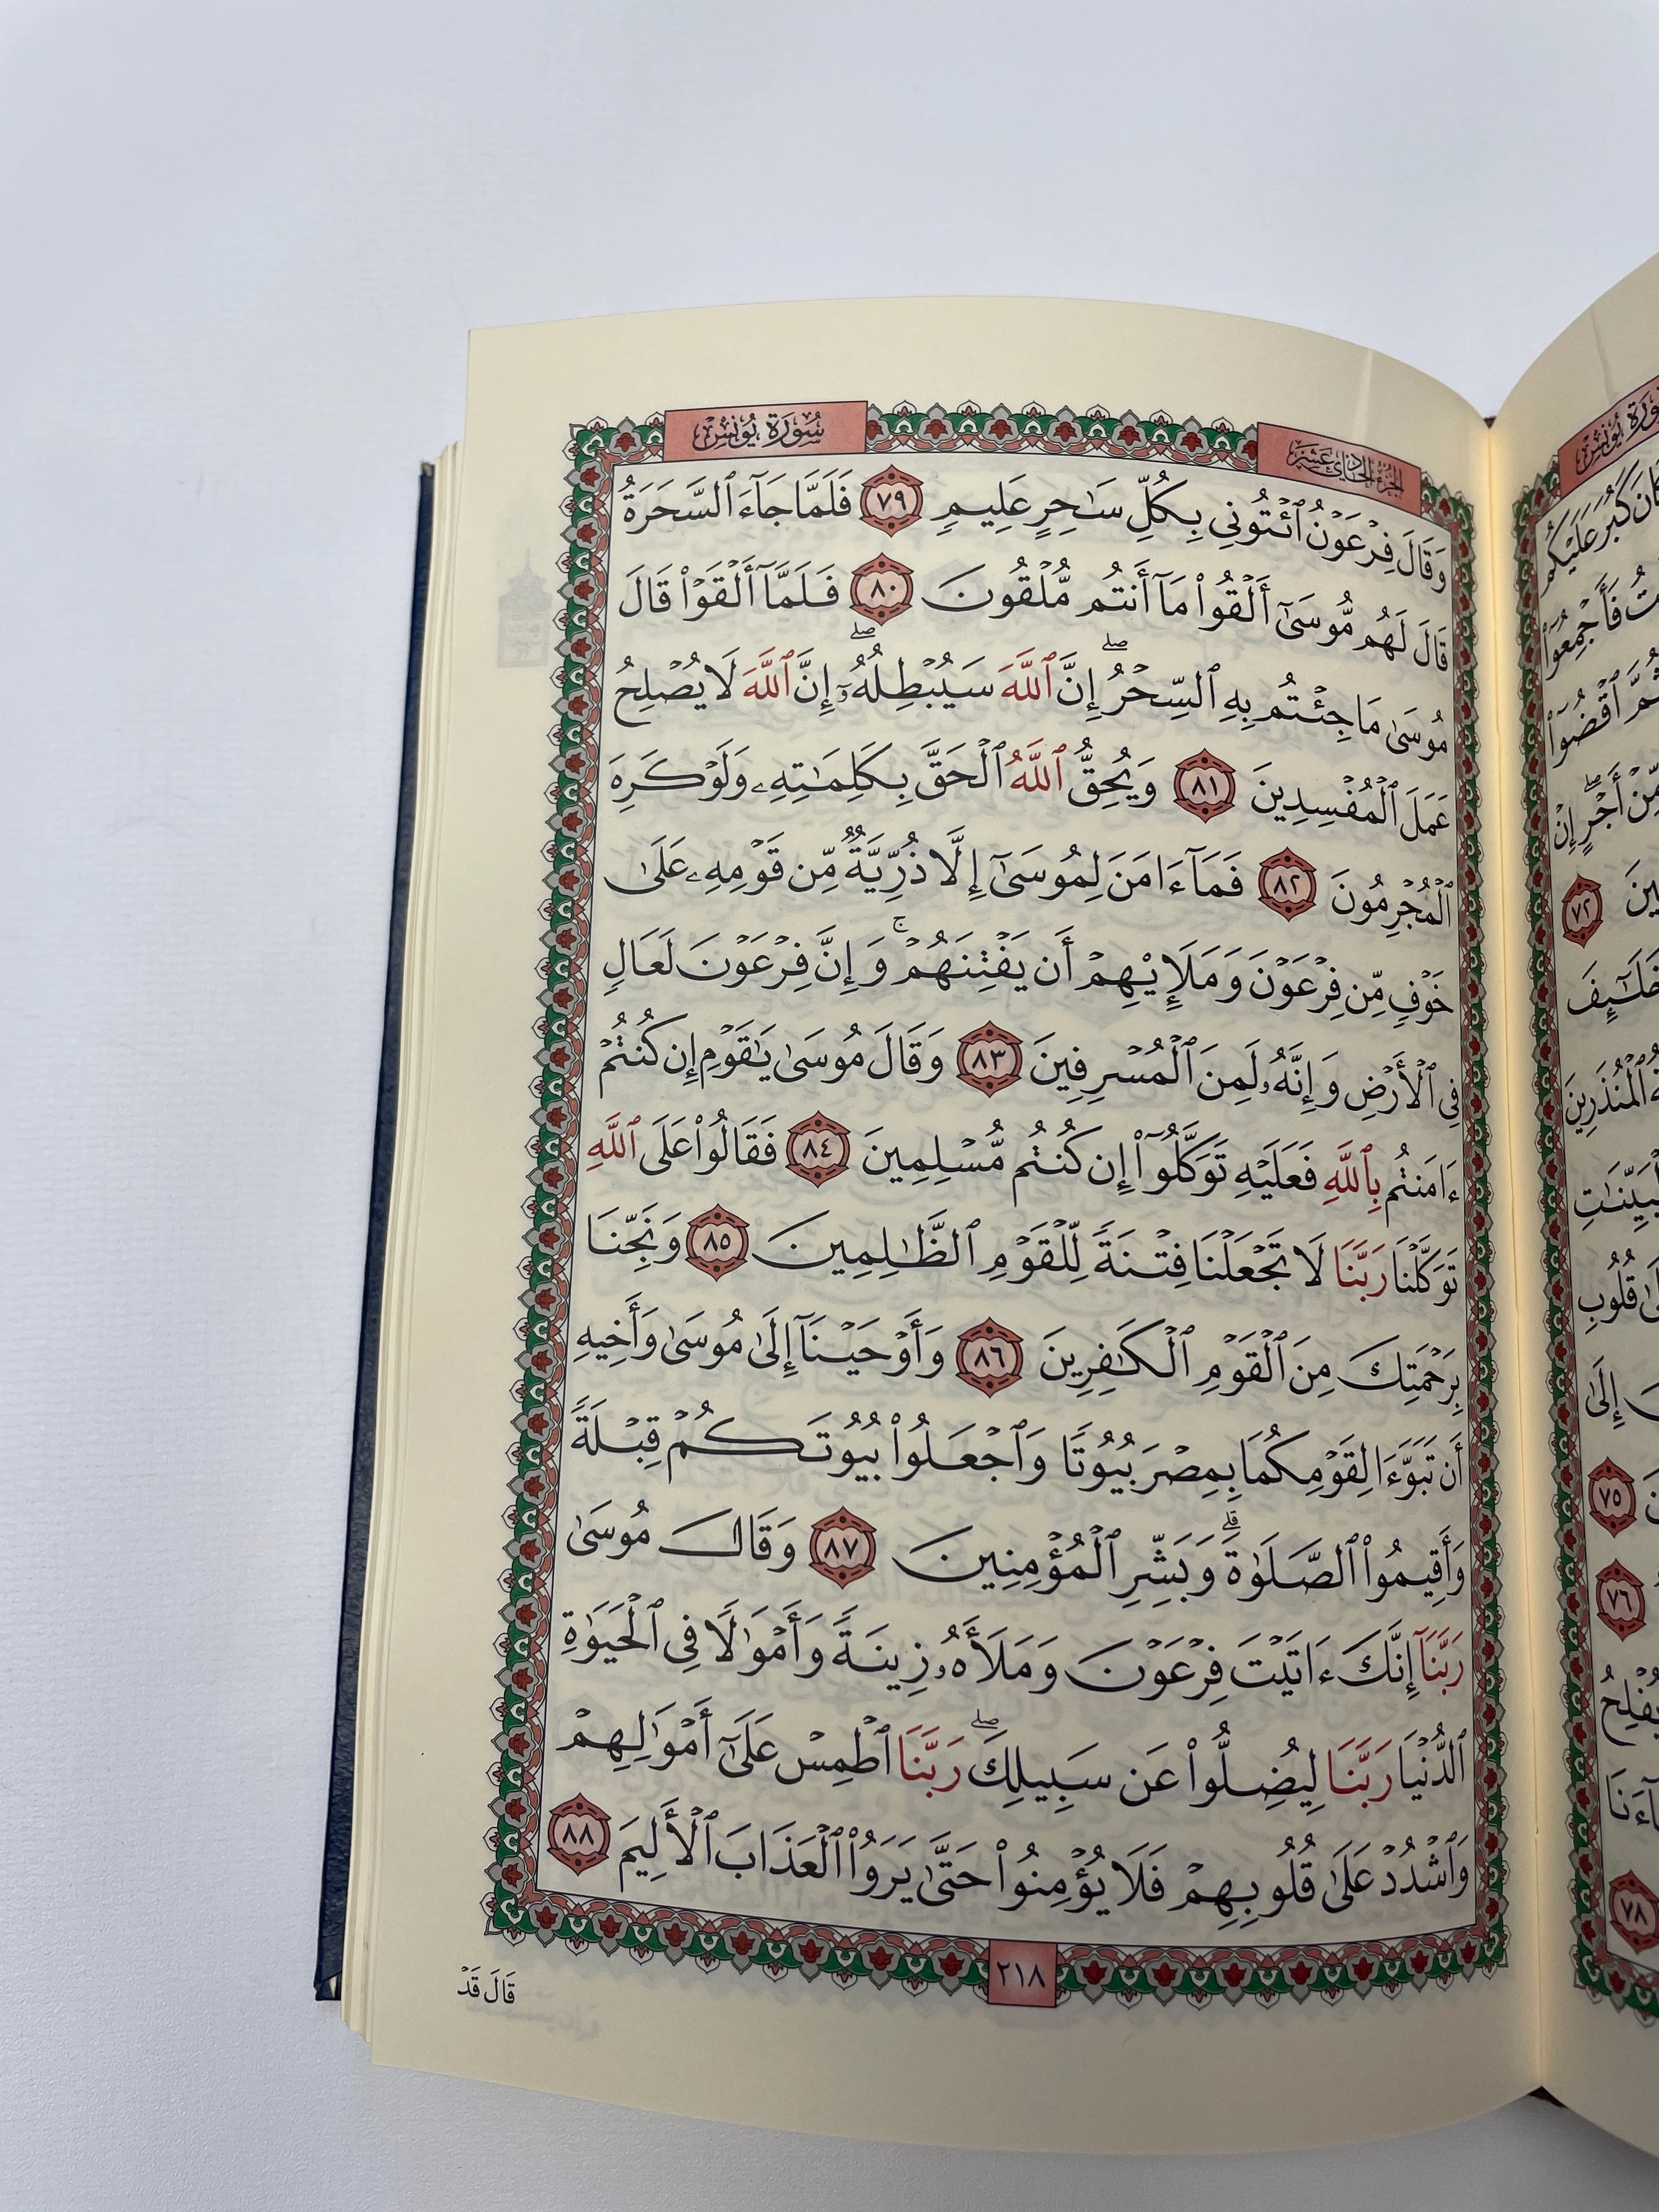 الجزء الحادي عشر
سورة يونس
وَقَالَ فِرْعَوْنُ ٱئْتُونِي بِكُلِّ سَٰحِرٍ عَلِيمٍ ٧٩ فَلَمَّا جَآءَ ٱلسَّحَرَةُ
قَالَ لَهُم مُّوسَىٰٓ أَلْقُوا۟ مَآ أَنتُم مُّلْقُونَ ٨٠ فَلَمَّآ أَلْقَوْا۟ قَالَ
مُوسَىٰ مَا جِئْتُم بِهِ ٱلسِّحْرُ ۖ إِنَّ ٱللَّهَ سَيُبْطِلُهُۥٓ ۖ إِنَّ ٱللَّهَ لَا يُصْلِحُ
عَمَلَ ٱلْمُفْسِدِينَ ٨١ وَيُحِقُّ ٱللَّهُ ٱلْحَقَّ بِكَلِمَٰتِهِۦ وَلَوْ كَرِهَ
ٱلْمُجْرِمُونَ ٨٢ فَمَآ ءَامَنَ لِمُوسَىٰٓ إِلَّا ذُرِّيَّةٌ مِّن قَوْمِهِۦ عَلَىٰ
خَوْفٍ مِّن فِرْعَوْنَ وَمَلَإِي۟هِمْ أَن يَفْتِنَهُمْ ۚ وَإِنَّ فِرْعَوْنَ لَعَالٍ
فِي ٱلْأَرْضِ وَإِنَّهُۥ لَمِنَ ٱلْمُسْرِفِينَ ٨٣ وَقَالَ مُوسَىٰ يَٰقَوْمِ إِن كُنتُمْ
ءَامَنتُم بِٱللَّهِ فَعَلَيْهِ تَوَكَّلُوٓا۟ إِن كُنتُم مُّسْلِمِينَ ٨٤ فَقَالُوا۟ عَلَى ٱللَّهِ
تَوَكَّلْنَا رَبَّنَا لَا تَجْعَلْنَا فِتْنَةً لِّلْقَوْمِ ٱلظَّٰلِمِينَ ٨٥ وَنَجِّنَا
بِرَحْمَتِكَ مِنَ ٱلْقَوْمِ ٱلْكَٰفِرِينَ ٨٦ وَأَوْحَيْنَآ إِلَىٰ مُوسَىٰ وَأَخِيهِ
أَن تَبَوَّءَا لِقَوْمِكُمَا بِمِصْرَ بُيُوتًا وَٱجْعَلُوا۟ بُيُوتَكُمْ قِبْلَةً
وَأَقِيمُوا۟ ٱلصَّلَوٰةَ ۗ وَبَشِّرِ ٱلْمُؤْمِنِينَ ٨٧ وَقَالَ مُوسَىٰ
رَبَّنَآ إِنَّكَ ءَاتَيْتَ فِرْعَوْنَ وَمَلَأَهُۥ زِينَةً وَأَمْوَٰلًا فِي ٱلْحَيَوٰةِ
ٱلدُّنْيَا رَبَّنَا لِيُضِلُّوا۟ عَن سَبِيلِكَ ۖ رَبَّنَا ٱطْمِسْ عَلَىٰٓ أَمْوَٰلِهِمْ
وَٱشْدُدْ عَلَىٰ قُلُوبِهِمْ فَلَا يُؤْمِنُوا۟ حَتَّىٰ يَرَوُا۟ ٱلْعَذَابَ ٱلْأَلِيمَ ٨٨
٢١٨
قَالَ قَدْ
سورة يونس
كَبُرَ عَلَيْكُم
فَأَجْمِعُوٓا۟
ثُمَّ ٱقْضُوٓا۟
مِّنْ أَجْرٍ ۖ إِنْ
٧٢
خَلَٰٓئِفَ
ٱلْمُنذَرِينَ
قُلُوبِ
إِلَىٰ
٧٥
٧٦
٧٨